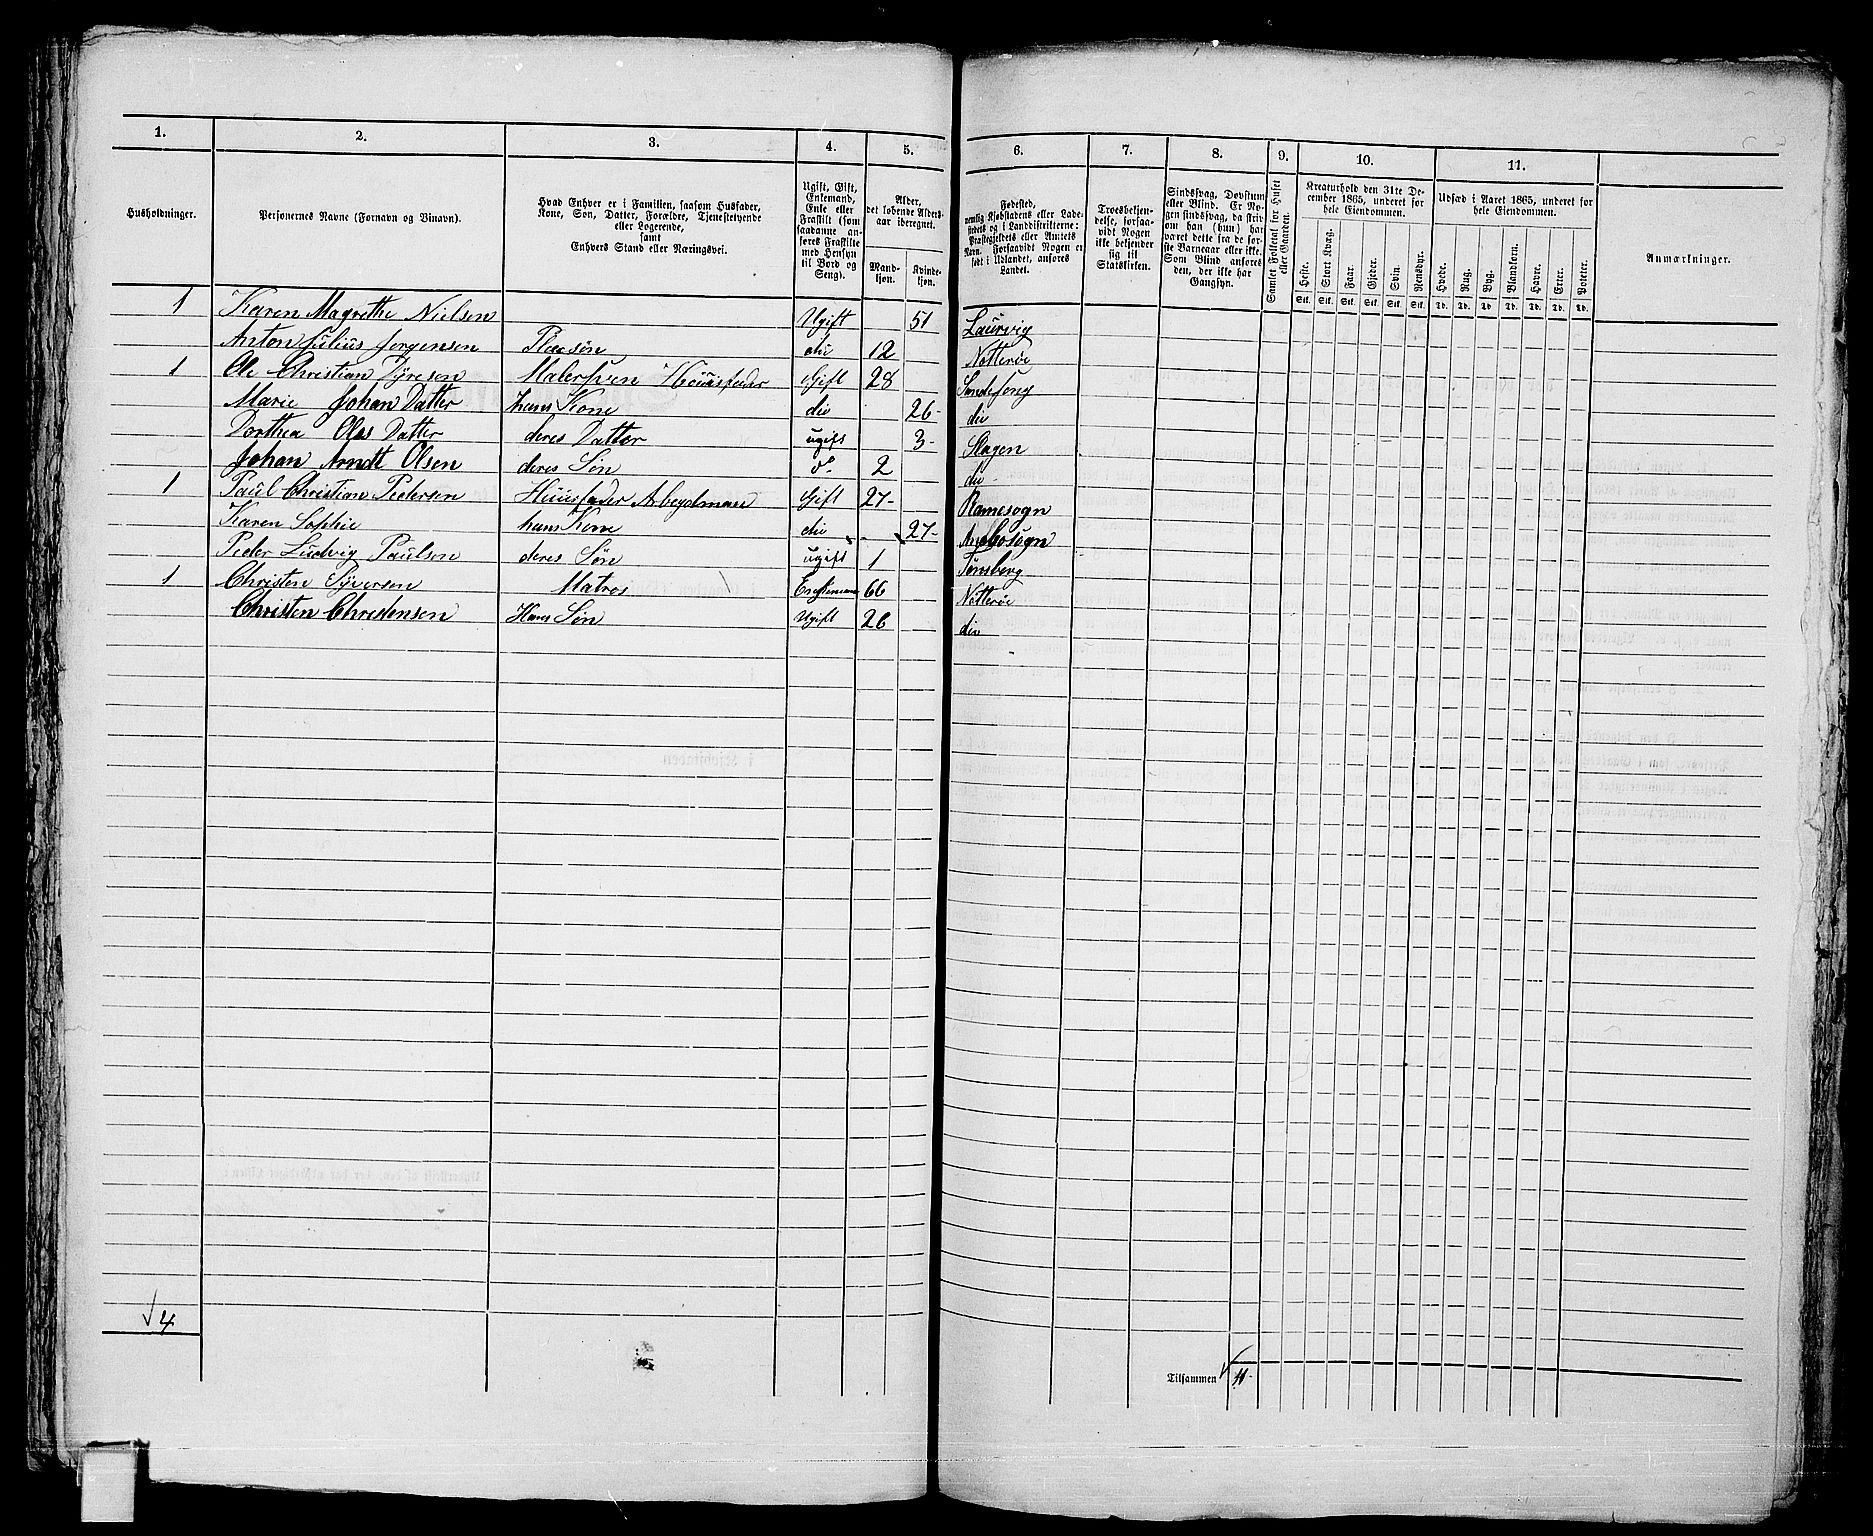 1. 2. 3. 4. 5. 6. 7. 8. 9. 10. 11.
Husholdninger.
Personernes Navne (Fornavn og Vinavn).
Hvad Enhver er i Familien, saasom Husfader,
Kone, Søn, Datter, Forældre, Tjenestetyende
eller Logerende,
samt
Enhvers Stand eller Næringsvei.
Ugift, Gift,
Enkemand,
Enke eller
Fraskilt (som
saadanne an-
føres Fraskilte
med Hensyn
til Bord og
Seng).
Alder,
det løbende Alders-
aar iberegnet.
Mand-
kjøn.
Kvinde-
kjøn.
Fødested,
nemlig Kjøbstadens eller Lade-
stedets og i Landdistrikterne:
Præstegjeldets eller Amtets
Navn. Forsaavidt Nogen er
født i Udlandet, anføres
Landet.
Troesbekjen-
delse, forsaa-
vidt Nogen
ikke bekjender
sig til
Statskirken.
Sindssvag, Døvstum
eller Blind. Er No-
gen sindssvag, da skriv
om han (hun) har
været dette fra de før-
ste Barneaar eller ikke.
Som Blind anføres
den, der ikke har
Gangsyn.
Samlet Folketal for Huset
eller Gaarden.
Kreaturhold den 31te De-
cember 1865, underet for
hele Eiendommen.
Heste. Stort Kvæg. Faar. Gjeder. Svin. Rensdyr.
Stk. Stk. Stk. Stk. Stk. Stk.
Udsæd i Aaret 1865, underet for
hele Eiendommen.
Hvede. Rug. Byg. Blandkorn. Havre. Erter. Poteter.
Td. Td. Td. Td. Td. Td. Td.
Anmærkninger.
1 Karen Magrethe Nielsen Ugift 51 Laurvig
Anton Julius Jørgensen Pleiesøn do 12 Nøtterøe
1 Ole Christian Dyresen Malersven Huusfader Gift 28 Sandefjong
Marie Johan Datter hans Kone do 26- do
Dorthea Oles Datter deres Datter ugift 3- Slagen
Johan Arndt Olsen deres Søn do 2 do
1 Paul Christian Pedersen Huusfader Arbeydmand Gift 27- Ramesogn
Karen Sophie hans Kone do 27- Arebosogn
Peder Ludvig Paulson deres Søn ugift 1 Tønsberg
1 Christen Syversen Matros Enkemann 66 Nøtterøe
Christen Christensen Hans Søn Ugift 26 do
4
Tilsammen 11